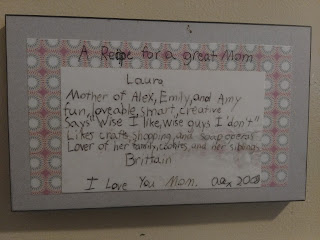 A Recipe for a great Mom
Laura
Mother of Alex, Emily, and Amy
fun, loveable, smart, creative
Says "Wise I like, wise guys I don't"
Likes crafts, shopping, and soap operas
Lover of her family, cookies, and her siblings
Brittain
I Love You Mom.